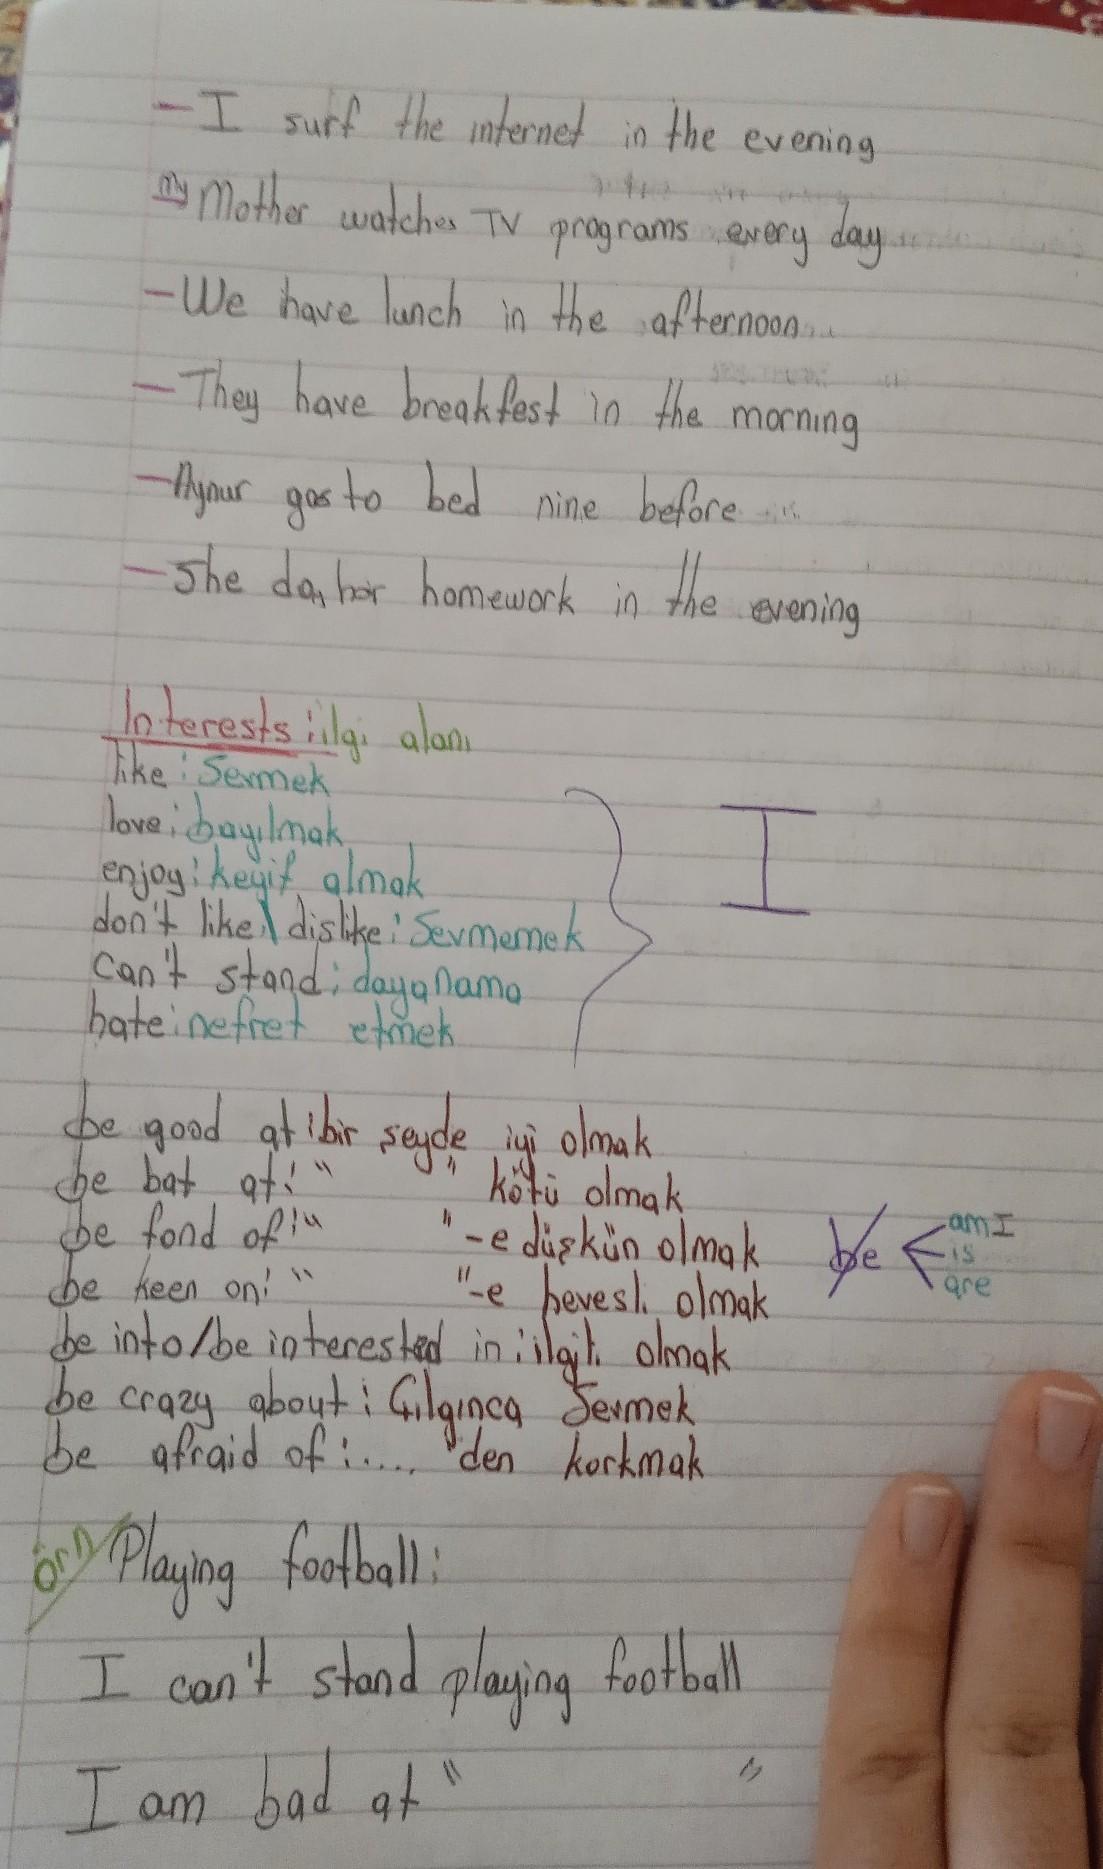 - I surf the internet in the evening
my Mother watches TV programs every day
- We have lunch in the afternoon..
- They have breakfest in the morning
- Aynur gos to bed nine before
- She do, her homework in the evening
Interests : ilgi alanı
like : Sevmek
love : bayılmak
enjoy : keyif almak
don't like \ dislike : Sevmemek
can't stand : dayanama
hate : nefret etmek
I
be good at : bir şeyde iyi olmak
be bat at : " " kötü olmak
be fond of : " " -e düşkün olmak
be keen on : " " -e hevesli olmak
be into/be interested in : ilgili olmak
be crazy about : Çılgınca Sevmek
be afraid of : .... 'den korkmak
be < am I
is
are
örn/ Playing football :
I can't stand playing football
I am bad at " "